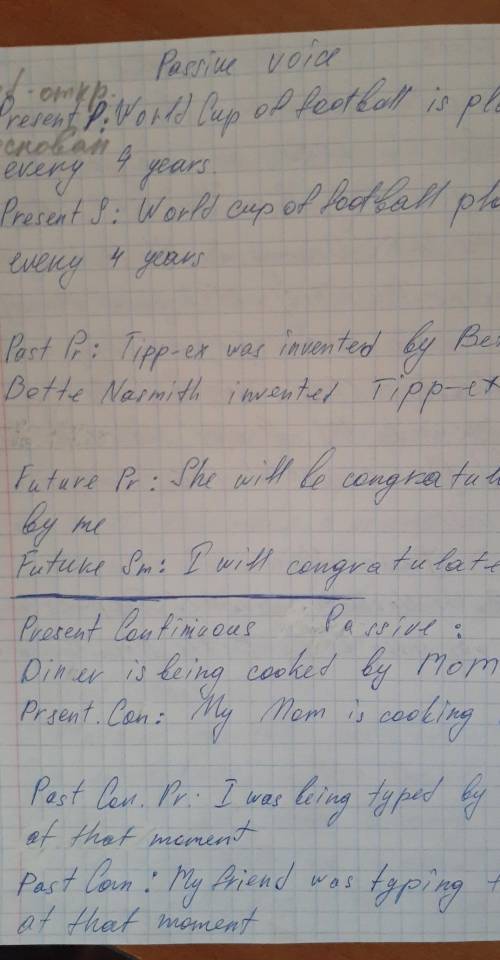 Passive voice
откр.
Present P: World Cup of football is
основан
every 4 years.
Present S: World cup of football
every 4 years
Past Pr: Tipp-ex was invented by
Bette Nasmith invented Tipp-ex
Future Pr: She will be
by me
Future Sm: I will congratulate
Present Continuous Passive:
Diner is being cooked by Mom
Prsent. Con: My Mom is cooking
Past Con. Pr: I was being typed by
at that moment
Past Con: My friend was typing
at that moment